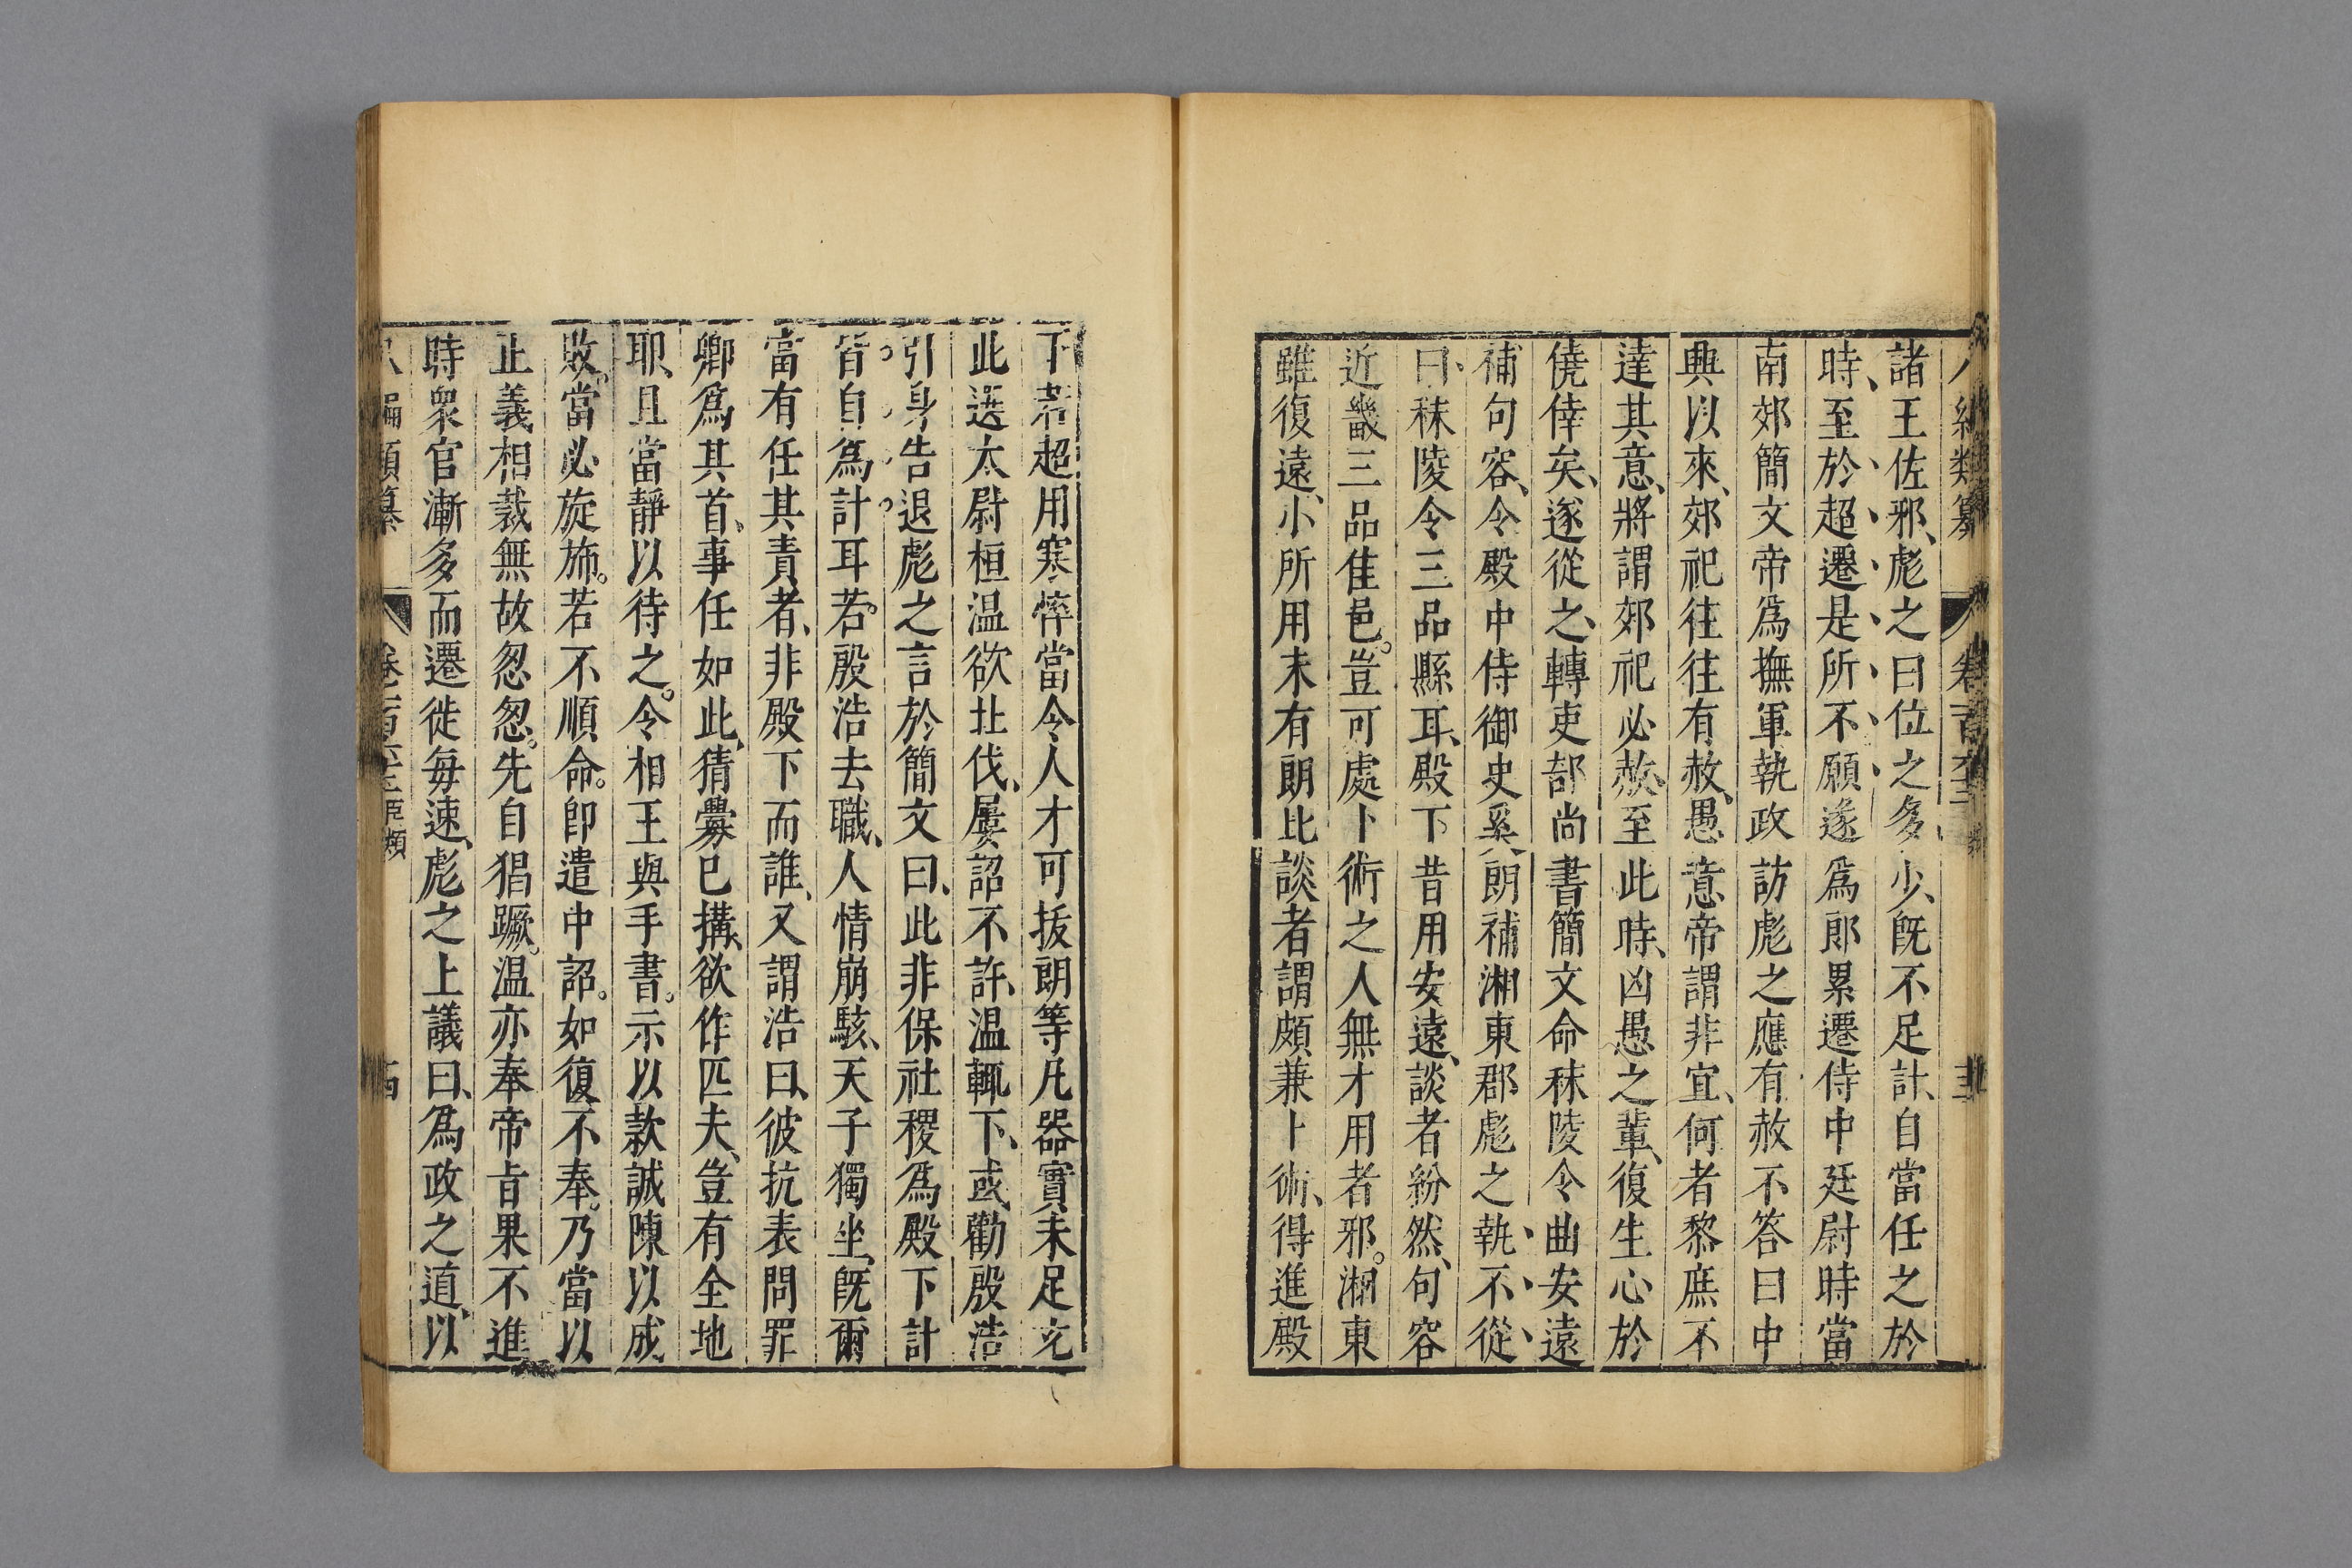 類纂 卷
諸王佐邪、彪之曰位之多少、既不足計、自當任之於
時、至於超遷是所不願遂爲郎累遷侍中廷尉時當
南郊簡文帝爲撫軍執政訪彪之應有赦不答曰中
興以來、郊祀往往有赦、愚意帝謂非宜、何者黎庶不
達其意、將謂郊祀必赦、至此時、凶愚之輩、復生心於
僥倖矣、遂從之、轉吏部尚書簡文命秣陵令曲安遠
補句容、令殿中侍御史奚朗補湘東郡彪之執不從
曰、秣陵令三品縣耳、殿下昔用安遠、談者紛然、句容
近畿三品佳邑。豈可處卜術之人無才用者邪。湘東
雖復遠、小所用未有朗比談者謂頗兼卜術、得進殿
下若超用寒悴當令人才可拔朗等凡器實未足充
此選太尉桓温欲北伐、屢詔不許、温輒下、或勸殷浩
引身告退彪之言於簡文曰、此非保社稷爲殿下計
皆自爲計耳若。殷浩去職、人情崩駭、天子獨坐、既爾
當有任其責者、非殿下而誰、又謂浩曰、彼抗表問罪
卿爲其首、事任如此、猜釁已搆、欲作匹夫、豈有全地
耶、且當靜以待之。令相王與手書。示以款誠陳以成
敗。當必旋旆。若不順命。即遣中詔。如復不奉。乃當以
正義相裁無故怱怱。先自猖蹶。温亦奉帝旨果不進
時衆官漸多而遷徙每速、彪之上議曰、爲政之道、以
八編類纂 卷 臣類